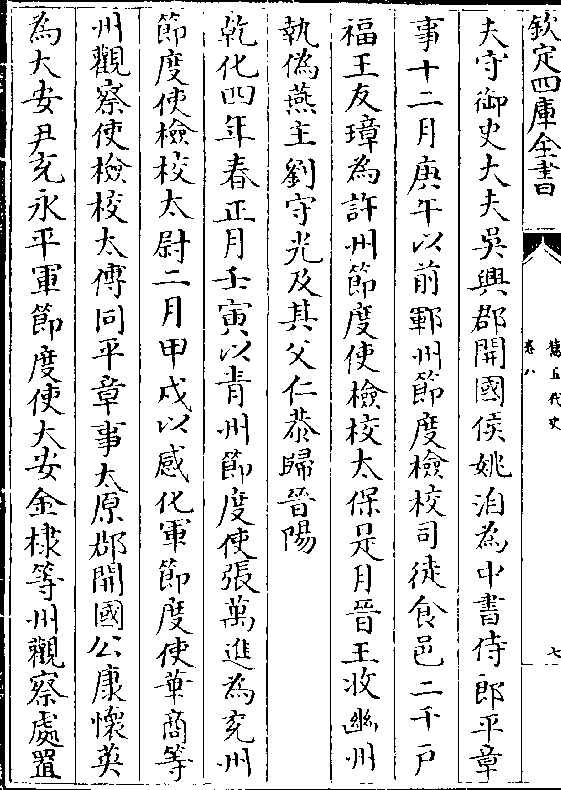 欽定四庫全書
舊五代史
卷八
七
夫守御史大夫吳興郡開國侯姚洎為中書侍郎平章
事十二月庚午以前鄆州節度檢校司徒食邑二千戶
福王友璋為許州節度使檢校太保是月晉王收幽州
執偽燕主劉守光及其父仁恭歸晉陽
乾化四年春正月壬寅以青州節度使張萬進為兖州
節度使檢校太尉二月甲戌以感化軍節度使華商等
州觀察使檢校太傅同平章事太原郡開國公康懷英
為大安尹充永平軍節度使大安金棣等州觀察處置